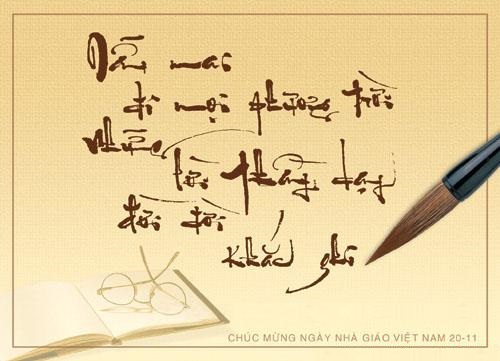 Dẫu mai
đi mọi phương trời
Những lời thầy dạy
đời đời
khắc ghi
CHÚC MỪNG NGÀY NHÀ GIÁO VIỆT NAM 20-11